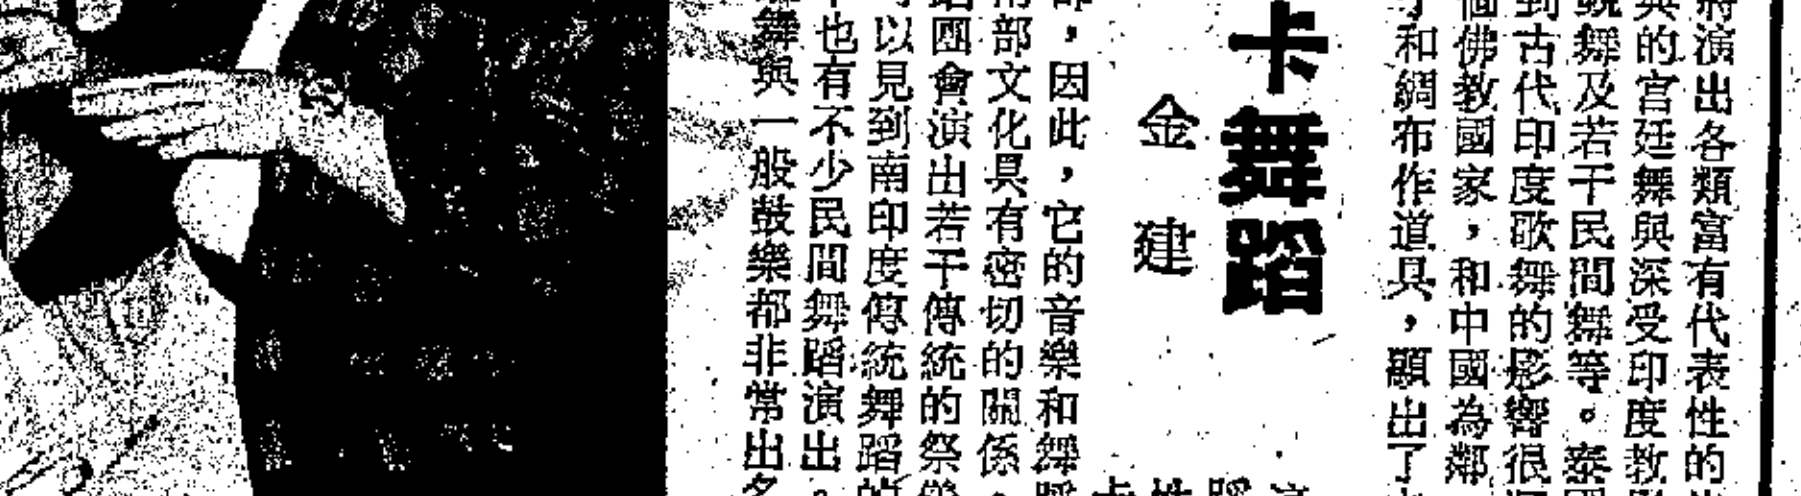 將演出各類富有代表性的
的宮廷舞與深受印度教
舞及若干民間舞等。泰國
到古代印度歌舞的影響很
個佛教國家，和中國為鄰
和綢布作道具，顯出了
卡舞蹈
金建
部，因此，它的音樂和舞蹈
南部文化具有密切的關係。
蹈團會演出若干傳統的祭
以見到南印度傳統舞蹈的
也有不少民間舞蹈演出。
舞與一般鼓樂都非常出名